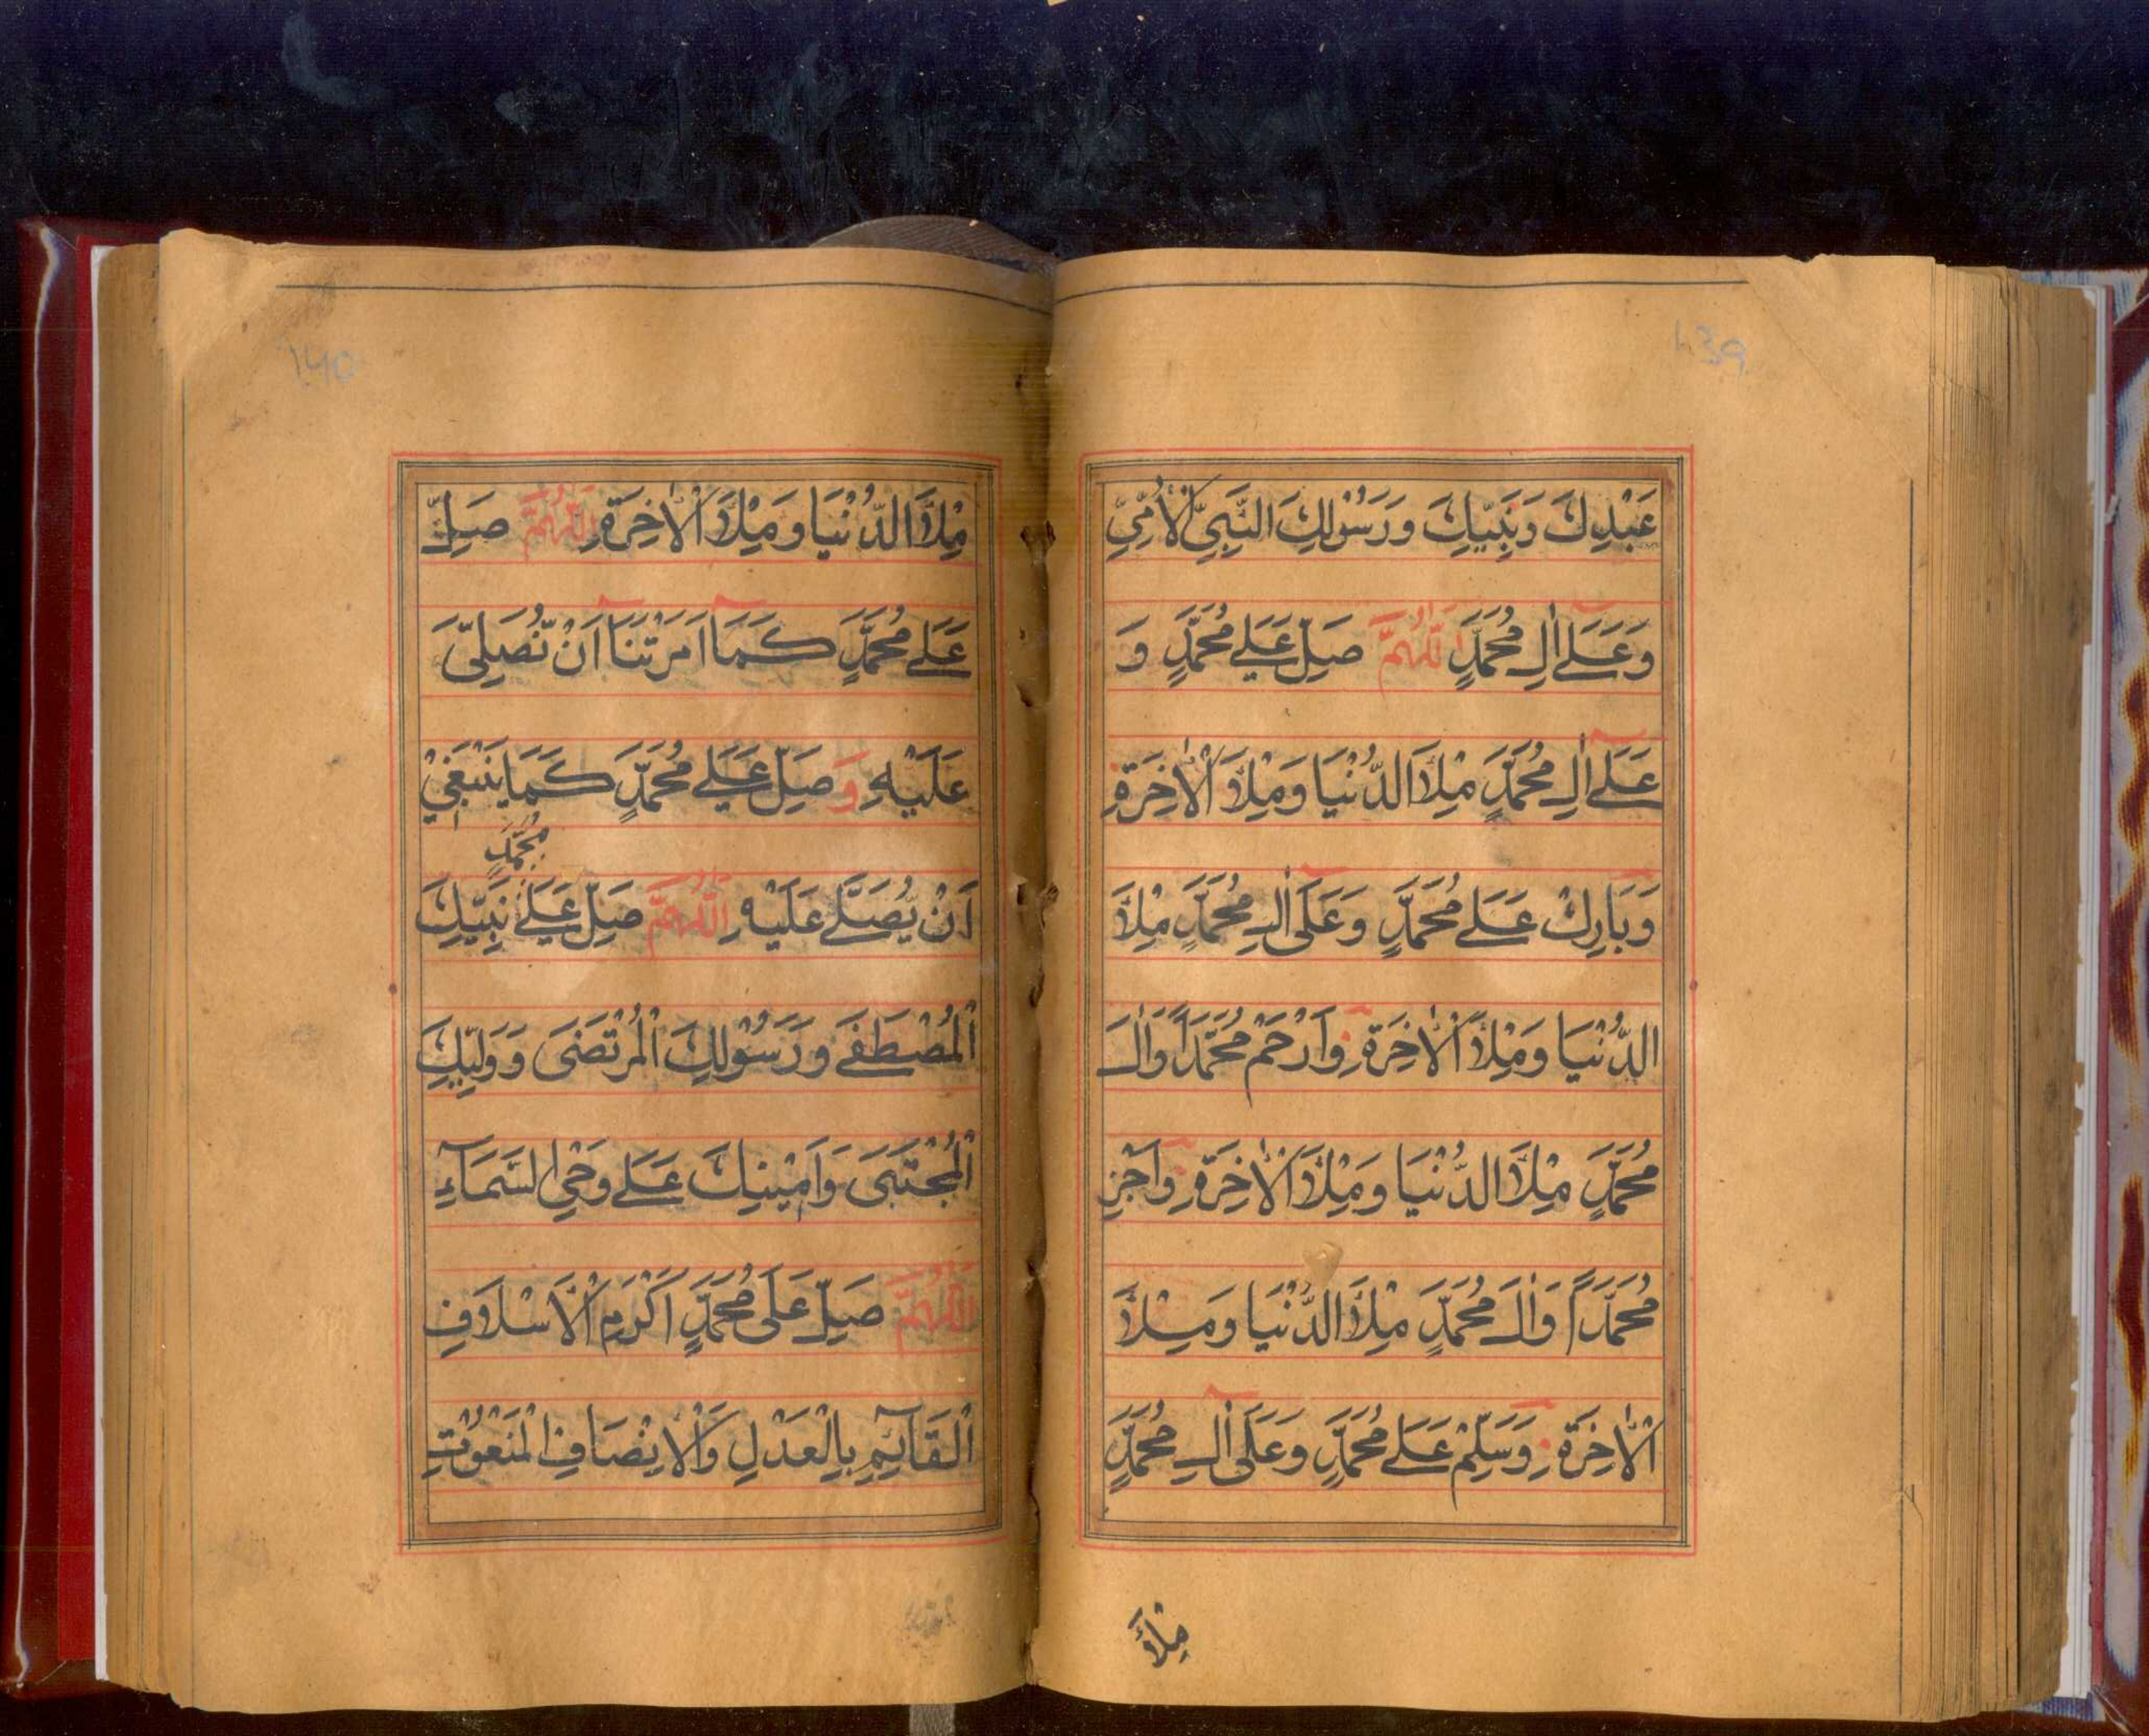 139
عَبْدِكَ وَنَبِيِّكَ وَرَسُوْلِكَ النَّبِيِّ الْاُمِّيِّ
وَعَلٰٓے اٰلِ مُحَمَّدٍ اَللّٰهُمَّ صَلِّ عَلٰے مُحَمَّدٍ وَ
عَلٰٓے اٰلِ مُحَمَّدٍ مِلْأَ الدُّنْيَا وَمِلْأَ الْاٰخِرَةِ
وَبَارِكْ عَلٰے مُحَمَّدٍ وَعَلٰٓى اٰلِ مُحَمَّدٍ مِلْأَ
الدُّنْيَا وَمِلْأَ الْاٰخِرَةِ وَارْحَمْ مُحَمَّدًا وَاٰلَ
مُحَمَّدٍ مِلْأَ الدُّنْيَا وَمِلْأَ الْاٰخِرَةِ وَاَجْزِ
مُحَمَّدًا وَاٰلَ مُحَمَّدٍ مِلْأَ الدُّنْيَا وَمِلْأَ
الْاٰخِرَةِ وَسَلِّمْ عَلٰے مُحَمَّدٍ وَعَلٰٓى اٰلِ مُحَمَّدٍ
مِلْأَ
140
مِلْأَ الدُّنْيَا وَمِلْأَ الْاٰخِرَةِ اَللّٰهُمَّ صَلِّ
عَلٰے مُحَمَّدٍ كَمَآ اَمَرْتَنَآ اَنْ نُّصَلِّيَ
عَلَيْهِ وَصَلِّ عَلٰے مُحَمَّدٍ كَمَا يَنْبَغِيْ
مُحَمَّدٍ
اَنْ يُصَلّٰے عَلَيْهِ اَللّٰهُمَّ صَلِّ عَلٰے نَبِيِّكَ
الْمُصْطَفَے وَرَسُوْلِكَ الْمُرْتَضَى وَوَلِيِّكَ
الْمُجْتَبَى وَاَمِيْنِكَ عَلٰے وَحْيِ السَّمَآءِ
اَللّٰهُمَّ صَلِّ عَلٰى مُحَمَّدٍ اَكْرَمِ الْاَسْلَافِ
الْقَآئِمِ بِالْعَدْلِ وَالْاِنْصَافِ الْمَنْعُوْتِ